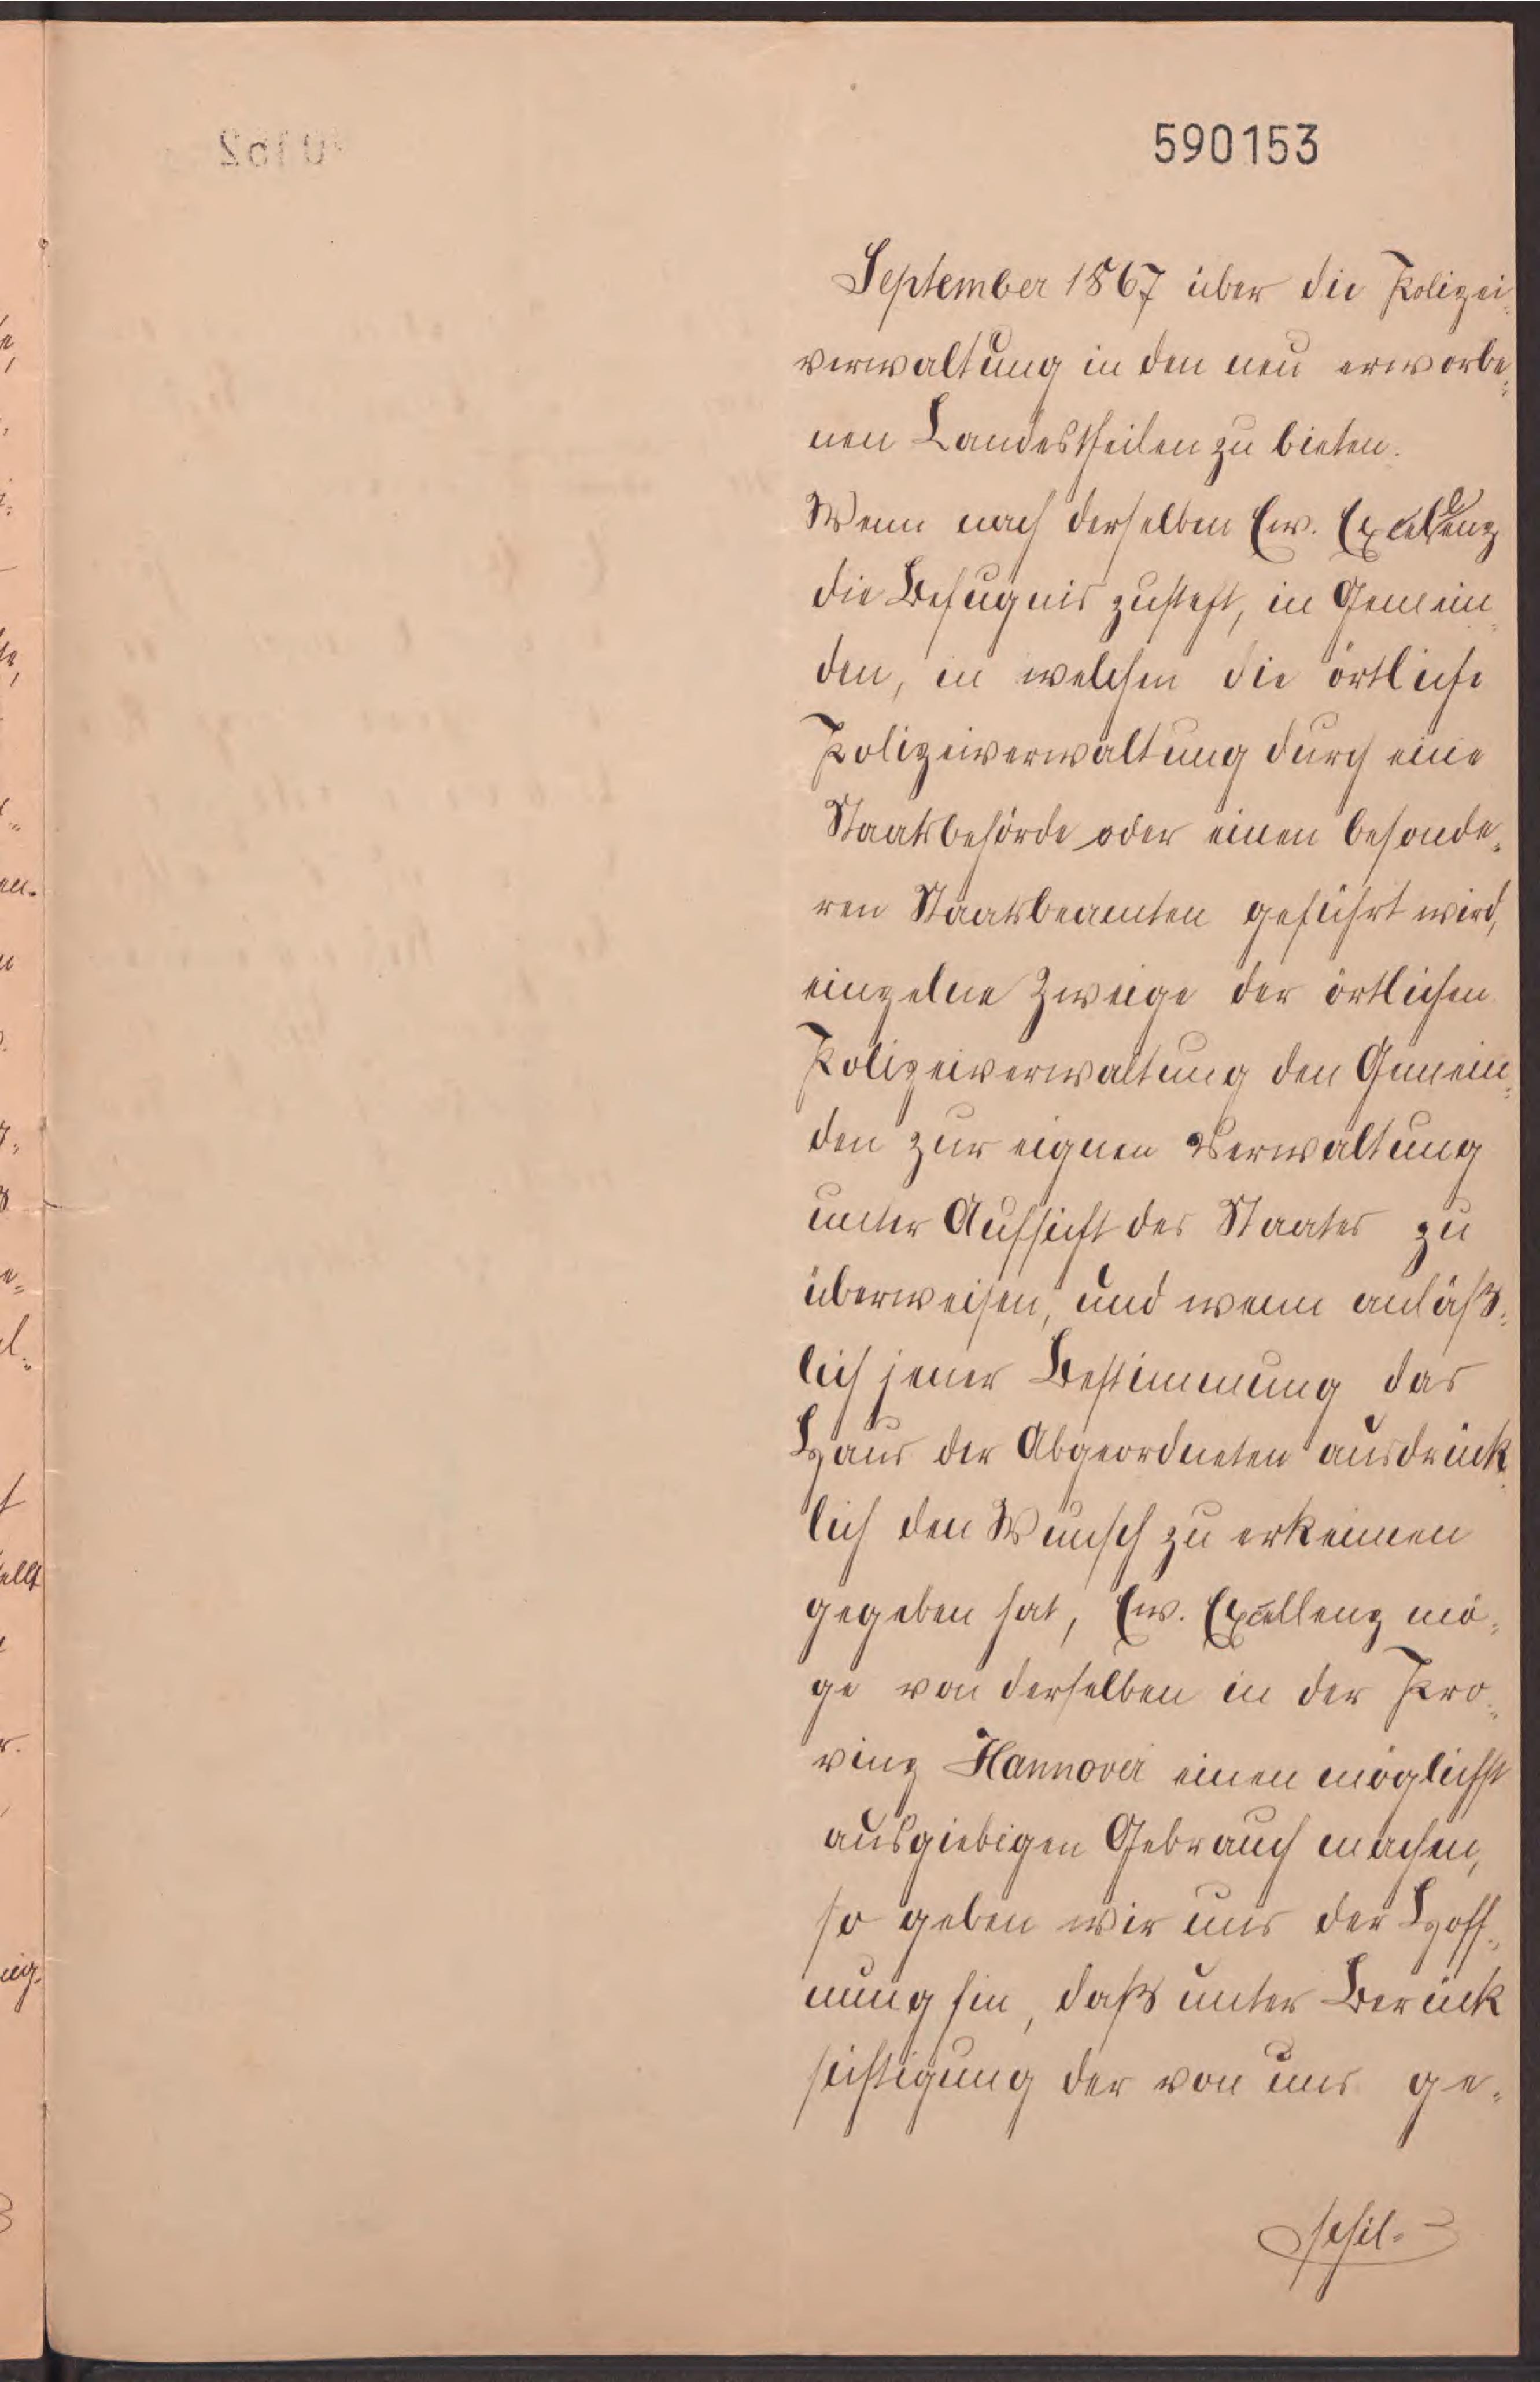 590153
September 1867 über die Polizei-
verwaltung in den neu erworbe-
nen Landestheilen zu bieten.
Wenn nach derselben Ew. Excellenz
die Befugnis zusteht, in Gemein-
den, in welchen die örtliche
Polizeiverwaltung durch eine
Staatsbehörde oder einen besonde-
ren Staatsbeamten geführt wird,
einzelne Zweige der örtlichen
Polizeiverwaltung den Gemein-
den zur eignen Verwaltung
unter Aufsicht des Staates zu
überweisen, und wenn anläß-
lich jener Bestimmung das
Haus der Abgeordneten ausdrück-
lich den Wunsch zu erkennen
gegeben hat, Ew. Excellenz mö-
ge von derselben in der Pro-
vinz Hannover einen möglichst
ausgiebigen Gebrauch machen,
so geben wir uns der Hoff-
nung hin, daß unter Berück
sichtigung der von uns ge-
schil-